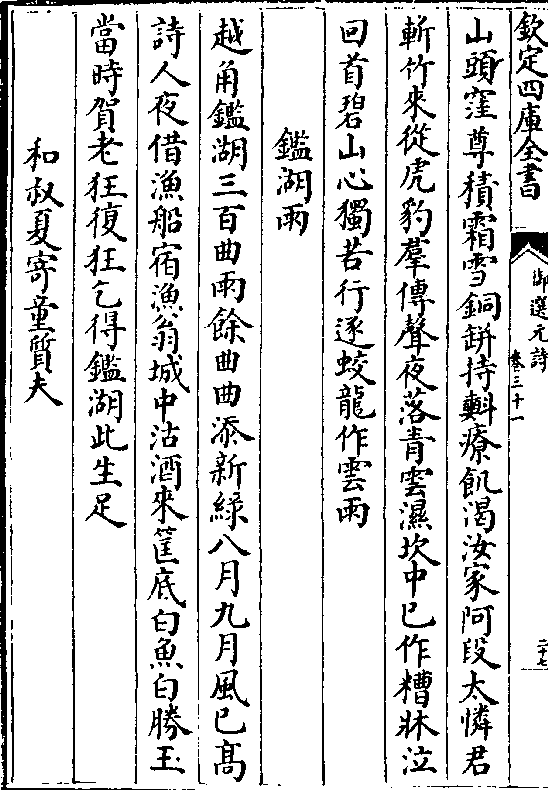 欽定四庫全書
御選元詩
卷三十一
二十七
山頭窪尊積霜雪銅缾持㪺療飢渴汝家阿段太憐君
斬竹來從虎豹羣傳聲夜落青雲濕坎中已作糟牀泣
回首碧山心獨苦行逐蛟龍作雲雨
鑑湖雨
越角鑑湖三百曲雨餘曲曲添新綠八月九月風已髙
詩人夜借漁船宿漁翁城中沽酒來筐底白魚白勝玉
當時賀老狂復狂乞得鑑湖此生足
和叔夏寄童質夫